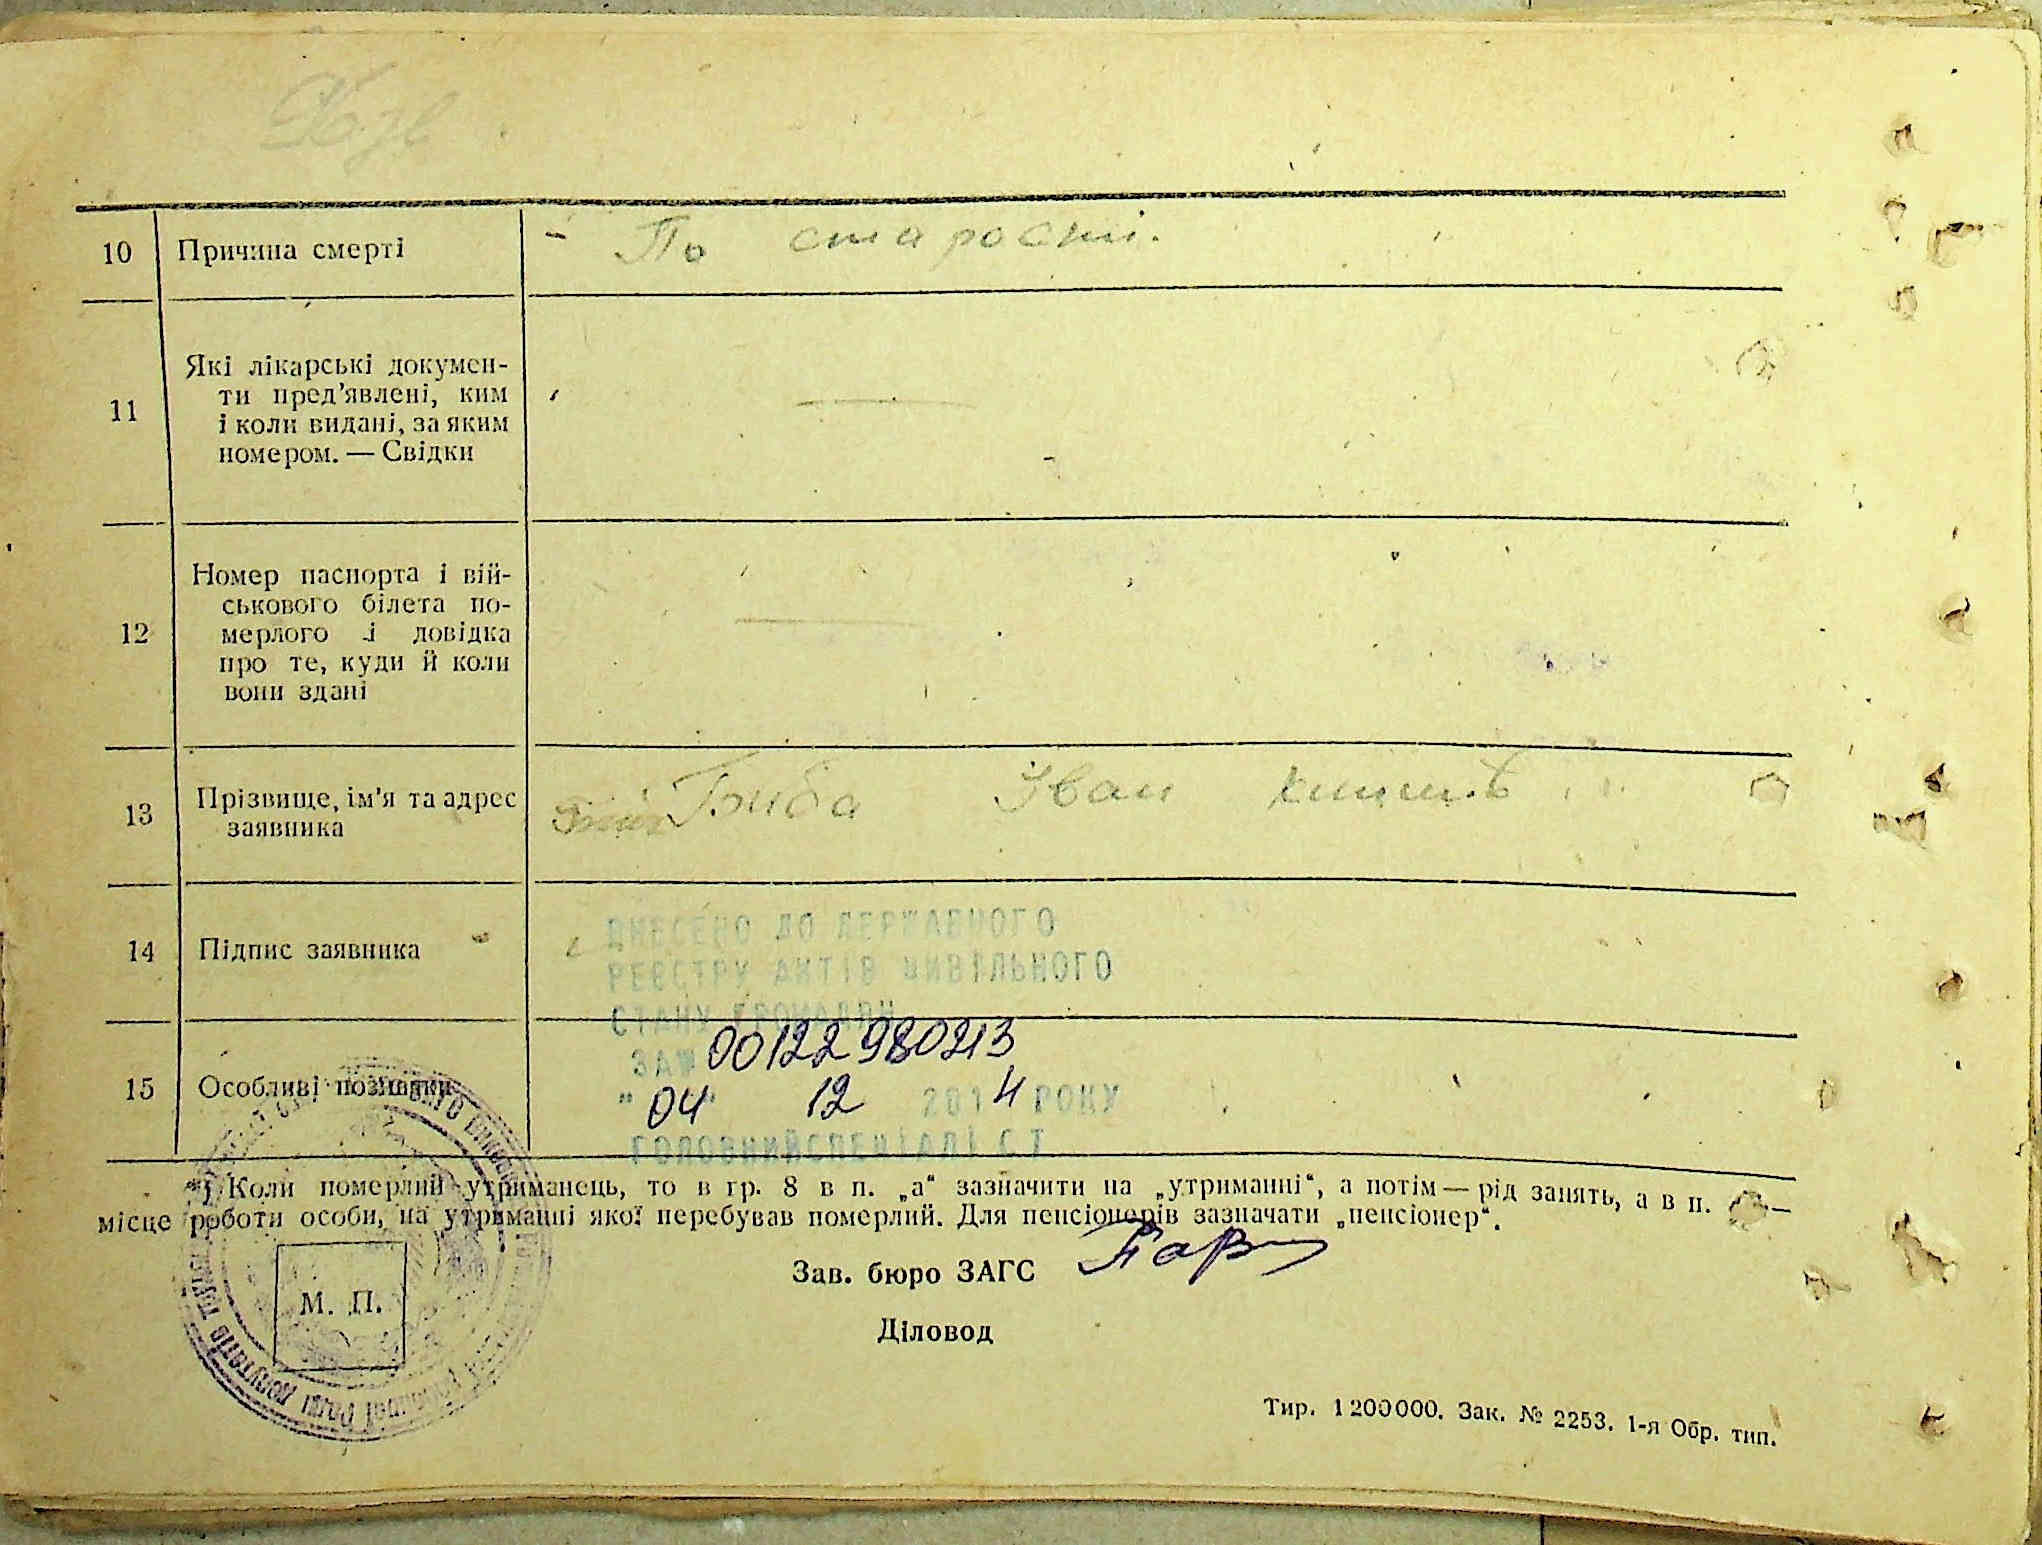 10 Причина смерті - По старости.
11 Які лікарські докумен-
ти пред'явлені, ким
і коли видані, за яким
номером. — Свідки
12 Номер паспорта і вій-
ськового білета по-
мерлого і довідка
про те, куди й коли
вони здані
13 Прізвище, ім'я та адрес Гриба Іван
заявника
14 Підпис заявника
ВНЕСЕНО ДО ДЕРЖАВНОГО
РЕЄСТРУ АКТІВ ЦИВІЛЬНОГО
СТАНУ ГРОМАДЯН
ЗА№ 00122980213
15 Особливі познавки
"04" 12 2014 РОКУ
ГОЛОВНИЙ СПЕЦІАЛІСТ
*) Коли померлий утриманець, то в гр. 8 в п. „а“ зазначити на „утриманні“, а потім — рід занять, а в п. —
місце роботи особи, на утриманні якої перебував померлий. Для пенсіонерів зазначати „пенсіонер“.
Зав. бюро ЗАГС
М. П.
Діловод
Тир. 1200000. Зак. № 2253. 1-я Обр. тип.